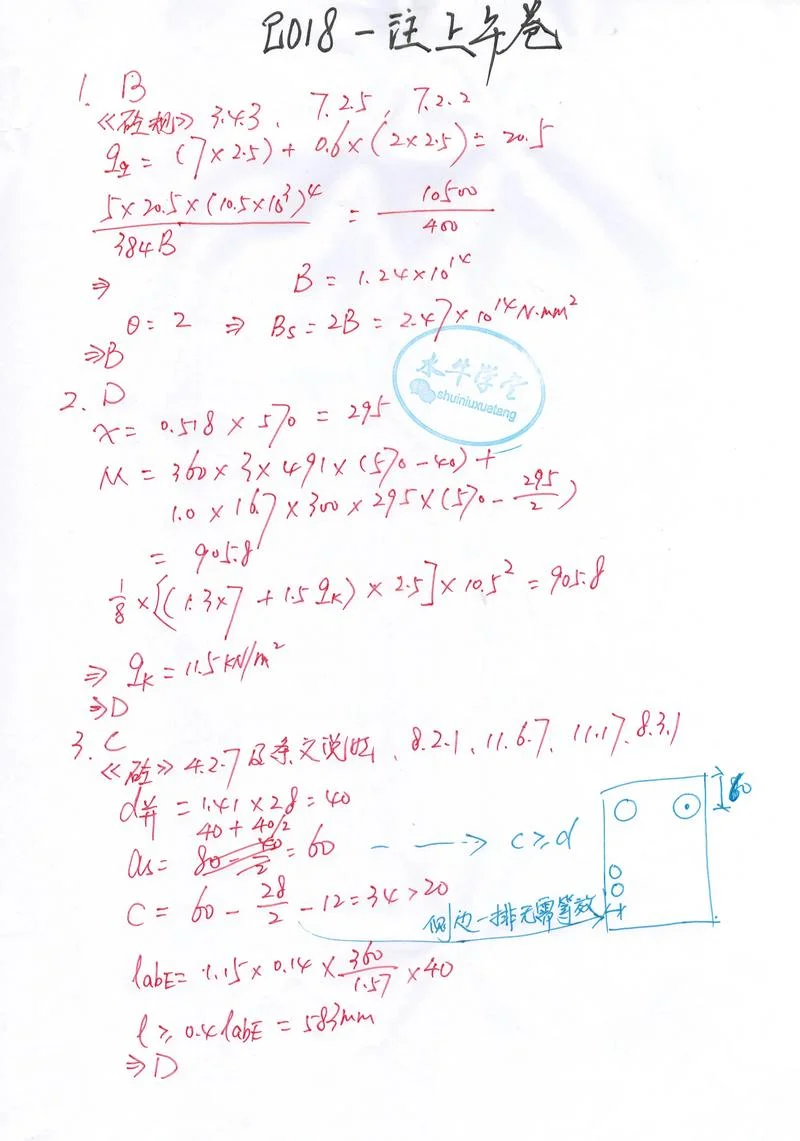 2018一注上午卷
1. B
《砼规》3.4.3、7.2.5、7.2.2
q_q = (7×2.5) + 0.6×(2×2.5) = 20.5
5×20.5×(10.5×10³)⁴ / 384B = 10500 / 400
⇒ B = 1.24×10¹⁴
θ = 2 ⇒ Bs = 2B = 2.47×10¹⁴ N·mm²
⇒B
水牛学堂
shuiniuxuetang
2. D
x = 0.518 × 570 = 295
M = 360×3×491×(570-40) +
1.0×16.7×300×295×(570-295/2)
= 905.8
1/8×[(1.3×7 + 1.5qk)×2.5]×10.5² = 905.8
⇒ qk = 11.5 kN/m²
⇒D
3. C
《砼》4.2.7及条文说明、8.2.1、11.6.7、11.1.7、8.3.1
d并 = 1.41×28 = 40
40 + 40/2
as = = 60 --→ c≥d
60
C = 60 - 28/2 - 12 = 34 > 20
侧边一排无需等效
labE = 1.15×0.14×360/1.57×40
l ≥ 0.4labE = 583mm
⇒D